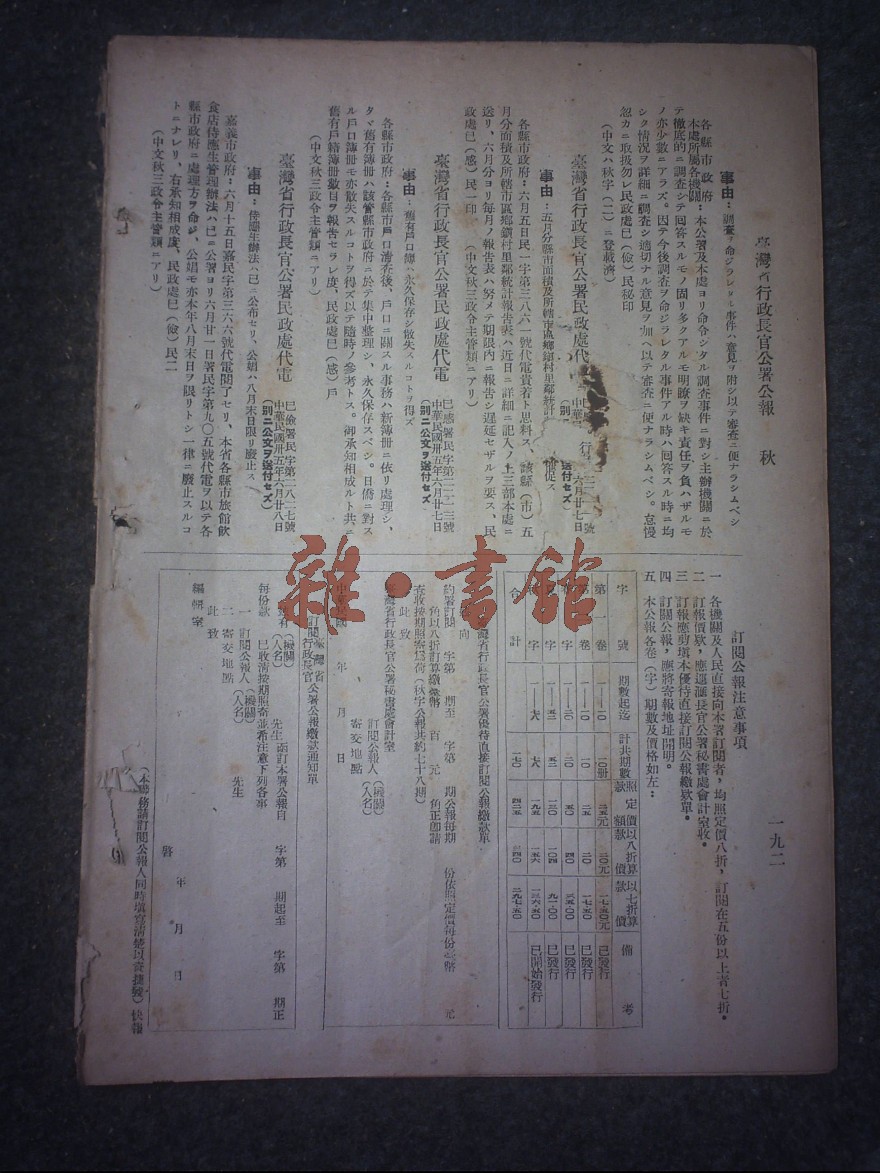 臺灣省行政長官公署公報　秋　一九二
事由：調查ヲ命ジラレタル事件ハ意見ヲ附シ以テ審查ニ便ナラシムベシ
各縣市政府
本處所屬各機關：本公署及本處ヨリ命令シタル調查事件ニ對シ主辦機關ニ於
テ徹底的ニ調查シテ回答スルモノ固リ多クアルモ明瞭ヲ缺キ責任ヲ負ハザルモ
ノ亦少數ニアラズ。因テ今後調查ヲ命ジラレタル事件アル時ハ回答スル時ニ均
シク情況ヲ詳細ニ調查シ適切ナル意見ヲ加ヘ以テ審查ニ便ナラシムベシ。怠慢
忽カニ取扱勿レ民政處巳（儉）民秘印
（中文ハ秋字（二）ニ登載濟）
臺灣省行政長官公署民政處代
六月廿七日
送付セズ
事由：五月分縣市面積及所轄市區鄉鎮村里鄰統計
各縣市政府：六月五日民一字第三八六一號代電貴着ト思料ス、該縣（市）五
月分面積及所轄市區鄉鎮村里鄰統計報告表ハ近日ニ詳細ニ記入ノ上三部本處ニ
送リ、六月分ヨリ每月ノ報告表ハ努メテ期限內ニ報告シ遲延セザルヲ要ス、民
政處巳（感）民一印　（中文秋三政令主管類ニアリ）
臺灣省行政長官公署民政處代電
巳感署民字第二一二三號
中華民國卅五年六月廿七日
（別ニ公文ヲ送付セズ
事由：舊有戶口簿ハ永久保存シ散失スルコトヲ得ズ
各縣市政府：各縣市戶口清查後、戶口ニ關スル事務ハ新簿冊ニ依リ處理シ、
タヾ舊有簿冊ハ該管縣市政府ニ於テ集中整理シ、永久保存スベシ。日僑ニ對ス
ル戶口簿冊モ亦散失スルコトヲ得ズ以テ隨時ノ參考トス。御承知相成ルト共ニ
舊有戶籍簿冊數目ヲ報告セラレ度、民政處巳（感）戶
（中文秋三政令主管類ニアリ）
臺灣省行政長官公署民政處代電
巳儉署民字第二八二七號
中華民國卅五年六月廿八日
（別ニ公文ヲ送付セズ）
事由：侍應生辦法ハ已ニ公布セリ、公娼ハ八月末日限リ廢止ス
嘉義市政府：六月十五日嘉民字第三六六號代電閱了セリ、本省各縣市旅館飲
食店侍應生管理辦法ハ已ニ公署ヨリ六月廿一日署民字第九〇五號代電ヲ以テ各
縣市政府ニ處理方ヲ命ジ、公娼モ亦本年八月末日ヲ限リトシ一律ニ廢止スルコ
トニナレリ、右承知相成度、民政處巳（儉）民二
（中文秋三政令主管類ニアリ）
訂閱公報注意事項
一　各機關及人民直接向本署訂閱者，均照定價八折，訂閱在五份以上者七折。
二　訂報價款，應逕滙長官公署秘書處會計室收。
三　訂報應剪填本優待直接訂閱公報繳款單。
四　訂閱公報，應將寄報地址開明。
五　本公報各卷（字）期數及價格如左：
字號　期數起迄　計共期數　照定價款額　以八折算款價　以七折算款價　備考
第一卷　一—一〇　一〇冊　二五元　二〇元　一七・五〇元　已發行
第二卷　一—一〇　一〇　二五　二〇　一七・五〇　已發行
字　一—二〇　二〇　五〇　四〇　三五・〇〇　已發行
字　一—五二　五二　一三〇　一〇四　九一・〇〇　已發行
字　一—七八　七八　一九五　一五六　一三六・五〇　已開始發行
合計　一七〇　四二五　三四〇　二九七・五〇
灣省行政長官公署優待直接訂閱公報繳款單
向
約署訂閱　字第　期至　字第　期公報每期　份依照定價每份臺幣　元
角以八折計算繳臺幣　百　元　角正卽請
查收按期照寄爲荷（秋字公報共約七十八期）
此致
灣省行政長官公署秘書處會計室
訂閱公報人（機關）（人名）
寄交地點
中華民國　年　月　日
臺灣省行政長官公署公報繳款通知單
訂閱
（機關）（人名）　先生　函訂本署公報自　字第　期起至　字第　期正
每份款　已收清按期照寄並希注意下列各事
一　訂閱公報人（機關）（人名）　先生
二　寄交地點
此致
編輯室
啓　年　月　日
（本聯務請訂閱公報人同時填寫清楚以資捷發）快報
雜・書館